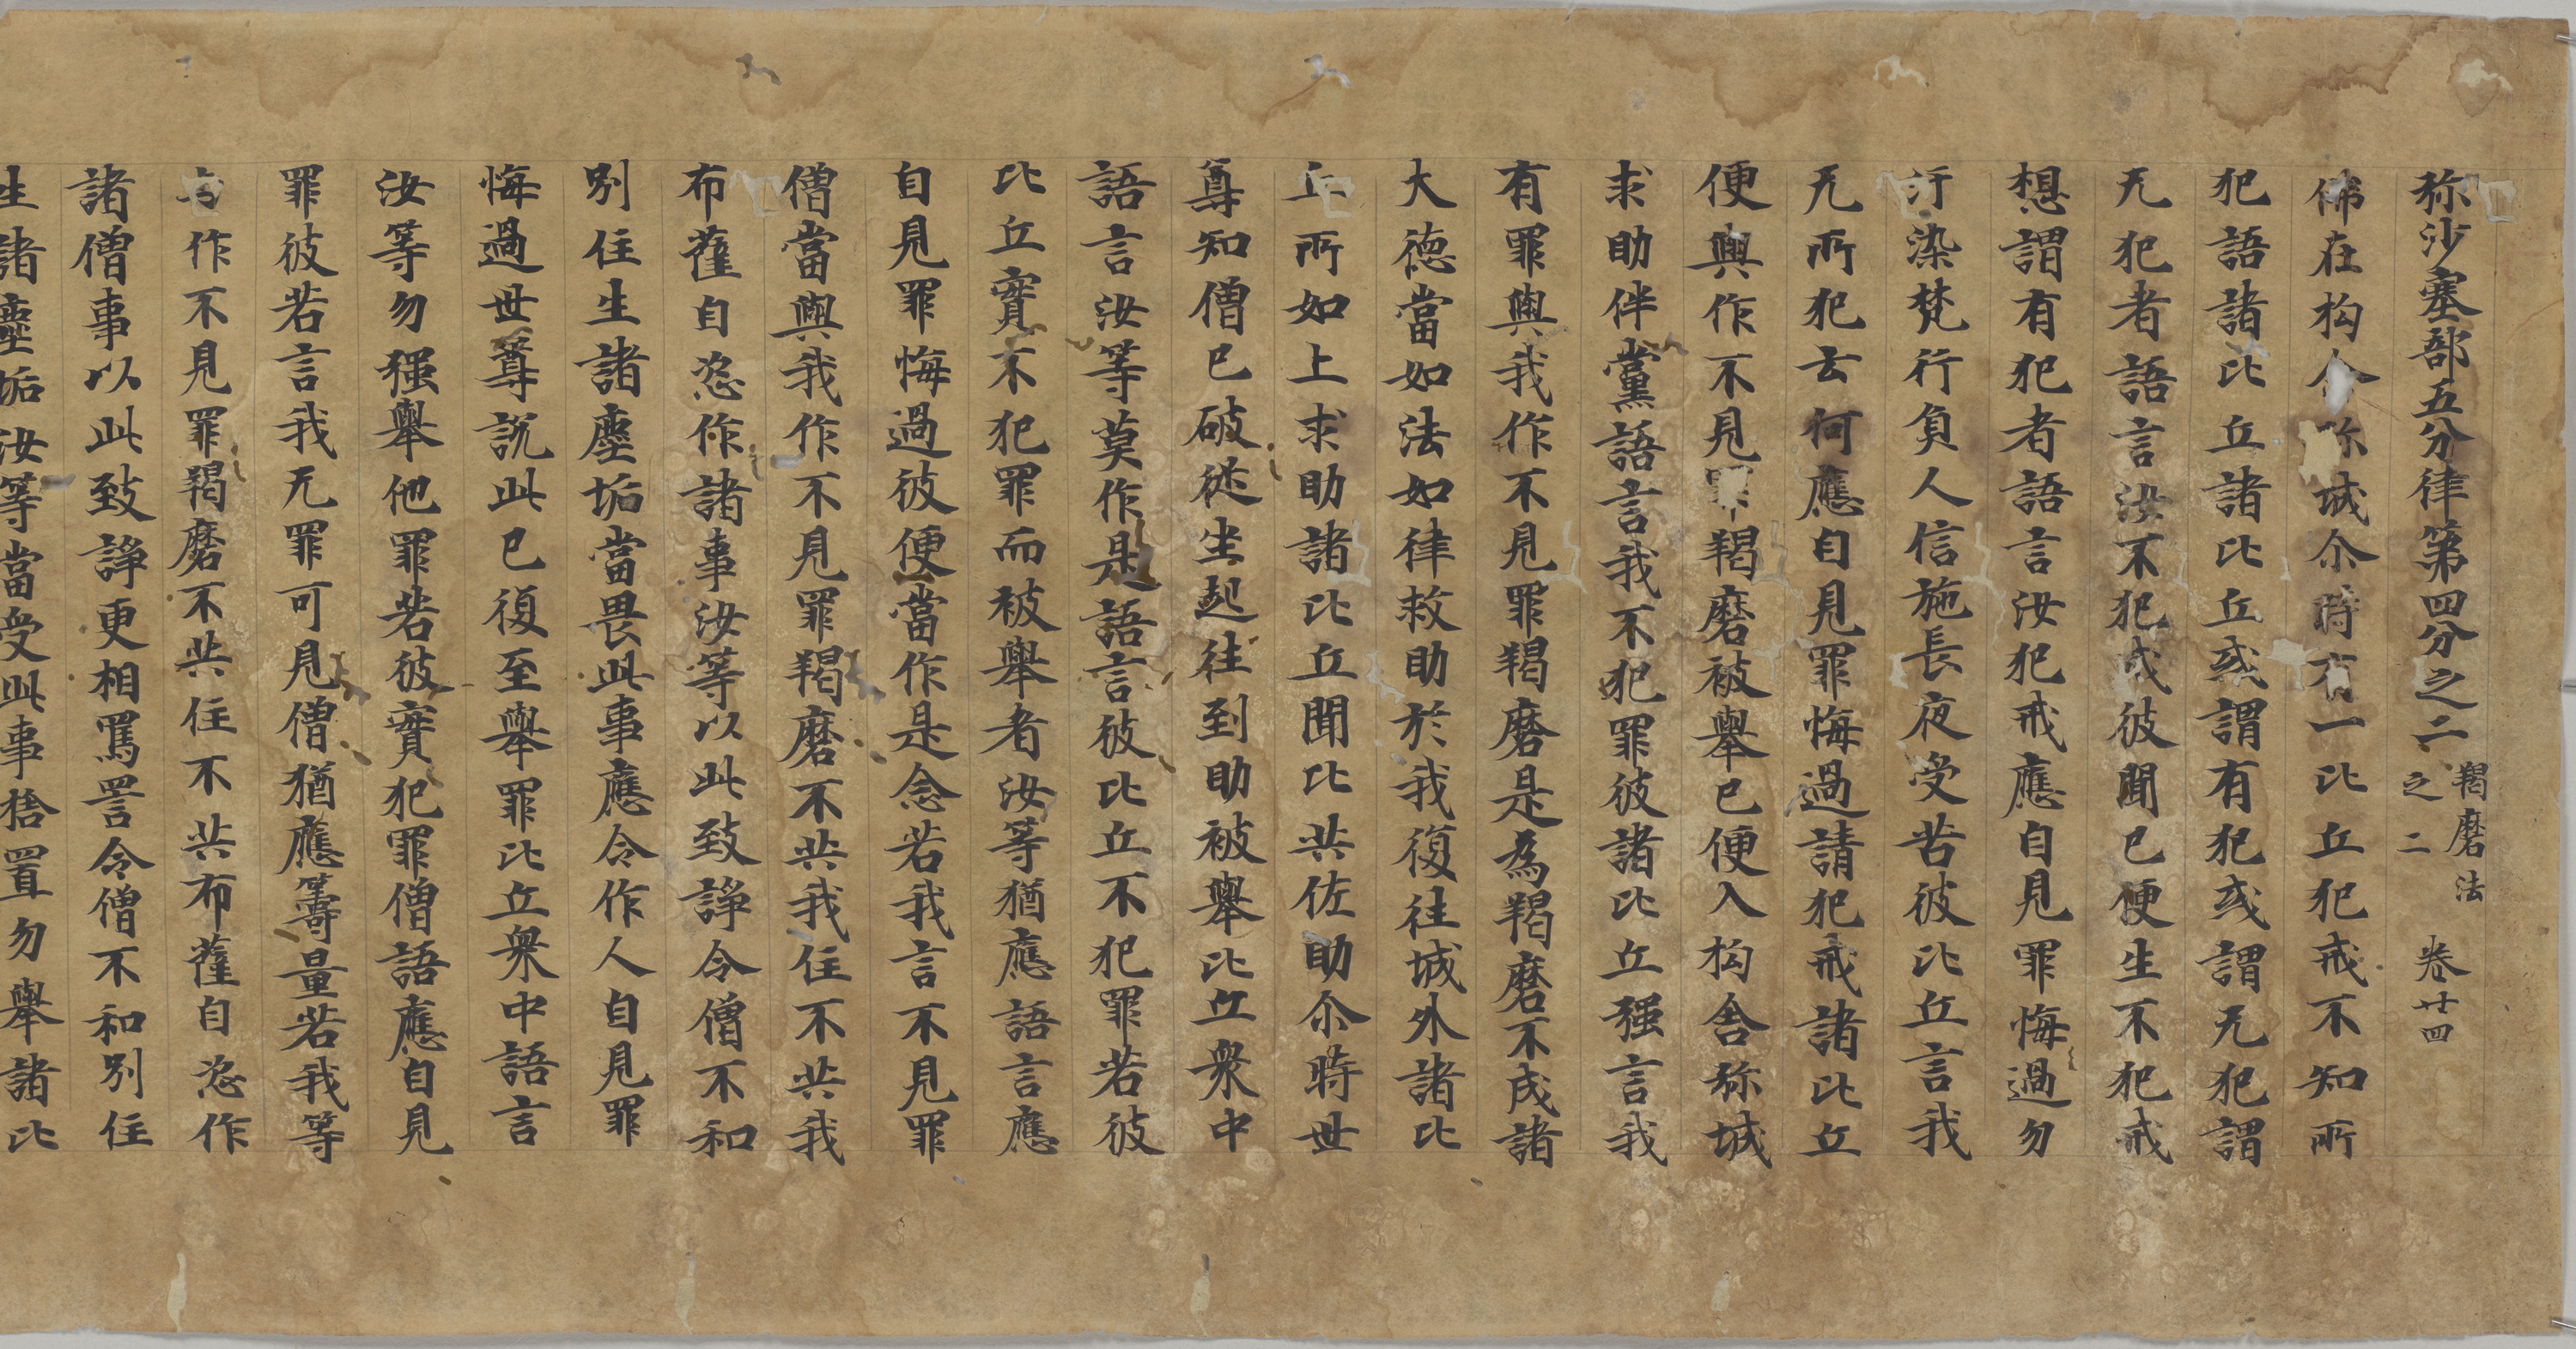 弥沙塞部五分律第四分之二 羯磨法之二 卷廿四
佛在拘舍弥城尒時有一比丘犯戒不知所
犯語諸比丘諸比丘或謂有犯或謂无犯謂
无犯者語言汝不犯戒彼聞已便生不犯戒
想謂有犯者語言汝犯戒應自見罪悔過勿
汙染梵行負人信施長夜受苦彼比丘言我
无所犯云何應自見罪悔過請犯戒諸比丘
便與作不見罪羯磨被舉已便入拘舍弥城
求助伴黨語言我不犯罪彼諸比丘强言我
有罪與我作不見罪羯磨是為羯磨不成諸
大德當如法如律救助於我復往城外諸比
丘所如上求助諸比丘聞比共佐助尒時世
尊知僧已破從坐起往到助被舉比丘衆中
語言汝等莫作是語言彼比丘不犯罪若彼
比丘實不犯罪而被舉者汝等猶應語言應
自見罪悔過彼便當作是念若我言不見罪
僧當與我作不見罪羯磨不共我住不共我
布薩自恣作諸事汝等以此致諍令僧不和
別住生諸塵垢當畏此事應令作人自見罪
悔過世尊說此已復至舉罪比丘衆中語言
汝等勿强舉他罪若彼實犯罪僧語應自見
罪彼若言我无罪可見僧猶應籌量若我等
與作不見罪羯磨不共住不共布薩自恣作
諸僧事以此致諍更相罵詈令僧不和別住
生諸塵垢汝等當受此事捨置勿舉諸比